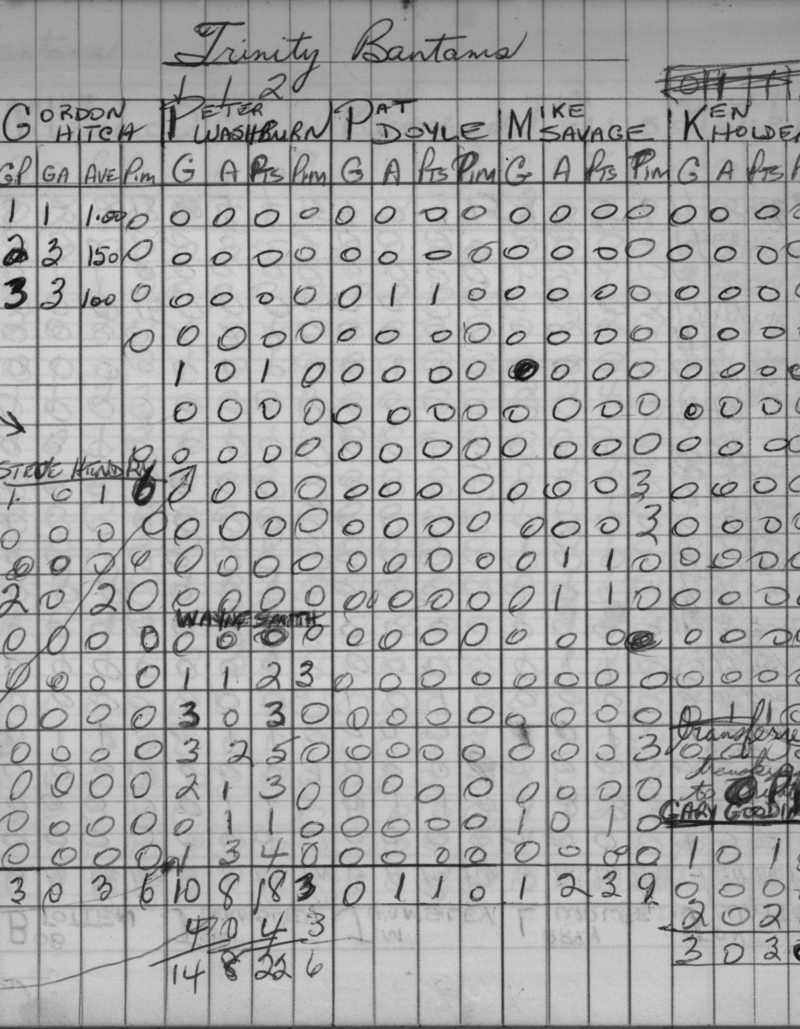 Trinity Bantams
1 1 2
GORDON HITCH PETER WASHBURN PAT DOYLE MIKE SAVAGE KEN HOLDE
GP GA AVE Pim G A Pts Pim G A Pts Pim G A Pts Pim G A Pts
1 1 1.00 0 0 0 0 0 0 0 0 0 0 0 0 0 0 0 0
2 3 150 0 0 0 0 0 0 0 0 0 0 0 0 0 0 0 0
3 3 100 0 0 0 0 0 0 1 1 0 0 0 0 0 0 0 0
0 0 0 0 0 0 0 0 0 0 0 0 0 0 0 0
1 0 1 0 0 0 0 0 0 0 0 0 0 0
0 0 0 0 0 0 0 0 0 0 0 0 0 0 0
0 0 0 0 0 0 0 0 0 0 0 0 0 0 0 0
STEVE HENDRY
1 0 1 6 0 0 0 0 0 0 0 0 0 0 0 3 0 0 0
0 0 0 0 0 0 0 0 0 0 0 0 0 0 0 3 0 0 0
0 0 0 0 0 0 0 0 0 0 0 0 0 1 1 0 0 0 0
2 0 2 0 0 0 0 0 0 0 0 0 0 1 1 0 0 0 0
WAYNE SMITH
0 0 0 0 0 0 0 0 0 0 0 0 0 0 0 0 0 0
0 0 0 0 1 1 2 3 0 0 0 0 0 0 0 0 0 0 0
0 0 0 0 3 0 3 0 0 0 0 0 0 0 0 0 0 1 1
transferre
0 0 0 0 3 2 5 0 0 0 0 0 0 0 0 3
0 0 0 0 2 1 3 0 0 0 0 0 0 0 0 0
to
GARY GOODI
0 0 0 0 0 1 1 0 0 0 0 0 1 0 1 0
0 0 0 0 1 3 4 0 0 0 0 0 0 0 0 0 1 0 1
3 0 3 6 10 8 18 3 0 1 1 0 1 2 3 9 0 0 0
4 0 4 3 2 0 2
14 8 22 6 3 0 3